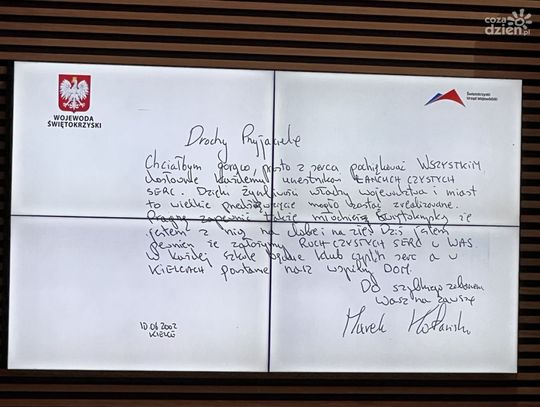 cozadzień.pl
WOJEWODA
ŚWIĘTOKRZYSKI
Świętokrzyski
Urząd Wojewódzki
Drodzy Przyjaciele
Chciałbym gorąco, prosto z serca podziękować WSZYSTKIM
dosłownie każdemu uczestnikowi ŁAŃCUCH CZYSTYCH
SERC. Dzięki życzliwości władz województwa i miast
to wielkie przedsięwzięcie mogło zostać zrealizowane.
Pragnę zapewnić także młodzież świętokrzyską że
jestem z nią na dobre i na złe. Dziś jestem
pewien że założymy RUCH CZYSTYCH SERC U WAS.
W każdej szkole będzie klub czystych serc a w
KIELCACH powstanie nasz wspólny DOM.
Do szybkiego zobaczenia
Wasz na zawsze
Marek Kotański
10.06.2002
KIELCE